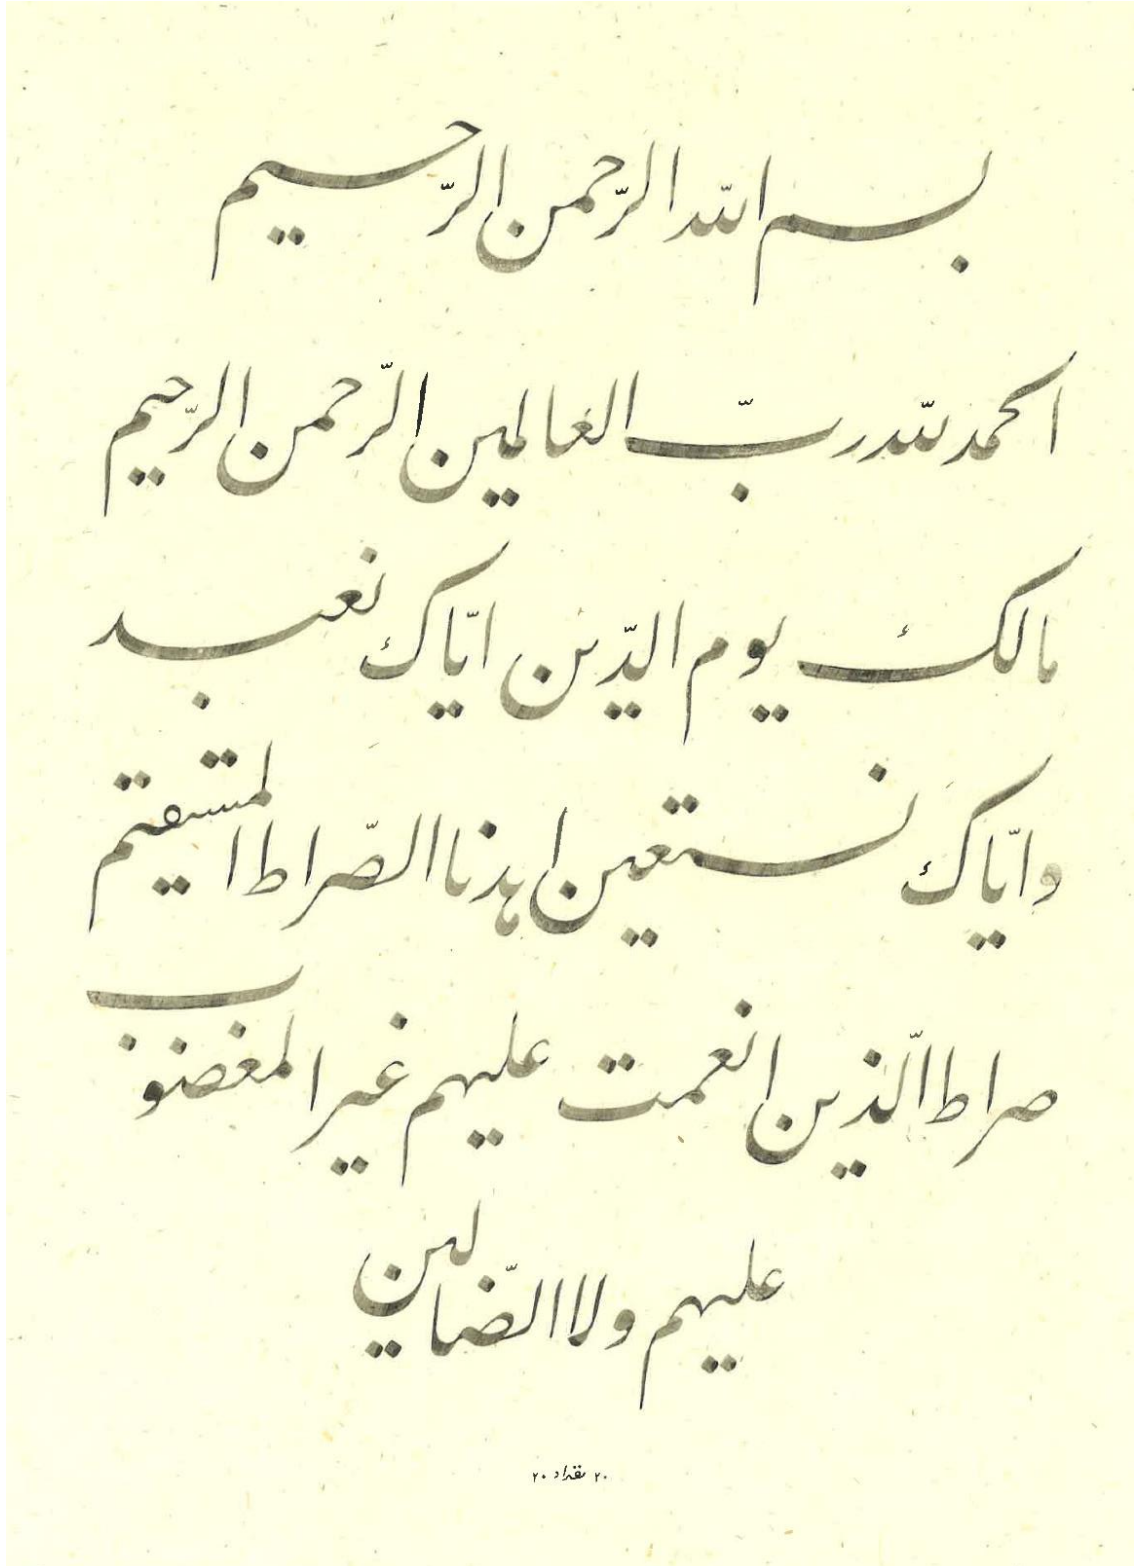 بسم الله الرّحمن الرّحيم
الحمد لله ربّ العالمين الرّحمن الرّحيم
مالك يوم الدّين ايّاك نعبد
وايّاك نستعين اهدنا الصّراط المستقيم
صراط الّذين انعمت عليهم غير المغضوب
عليهم ولا الضّالين